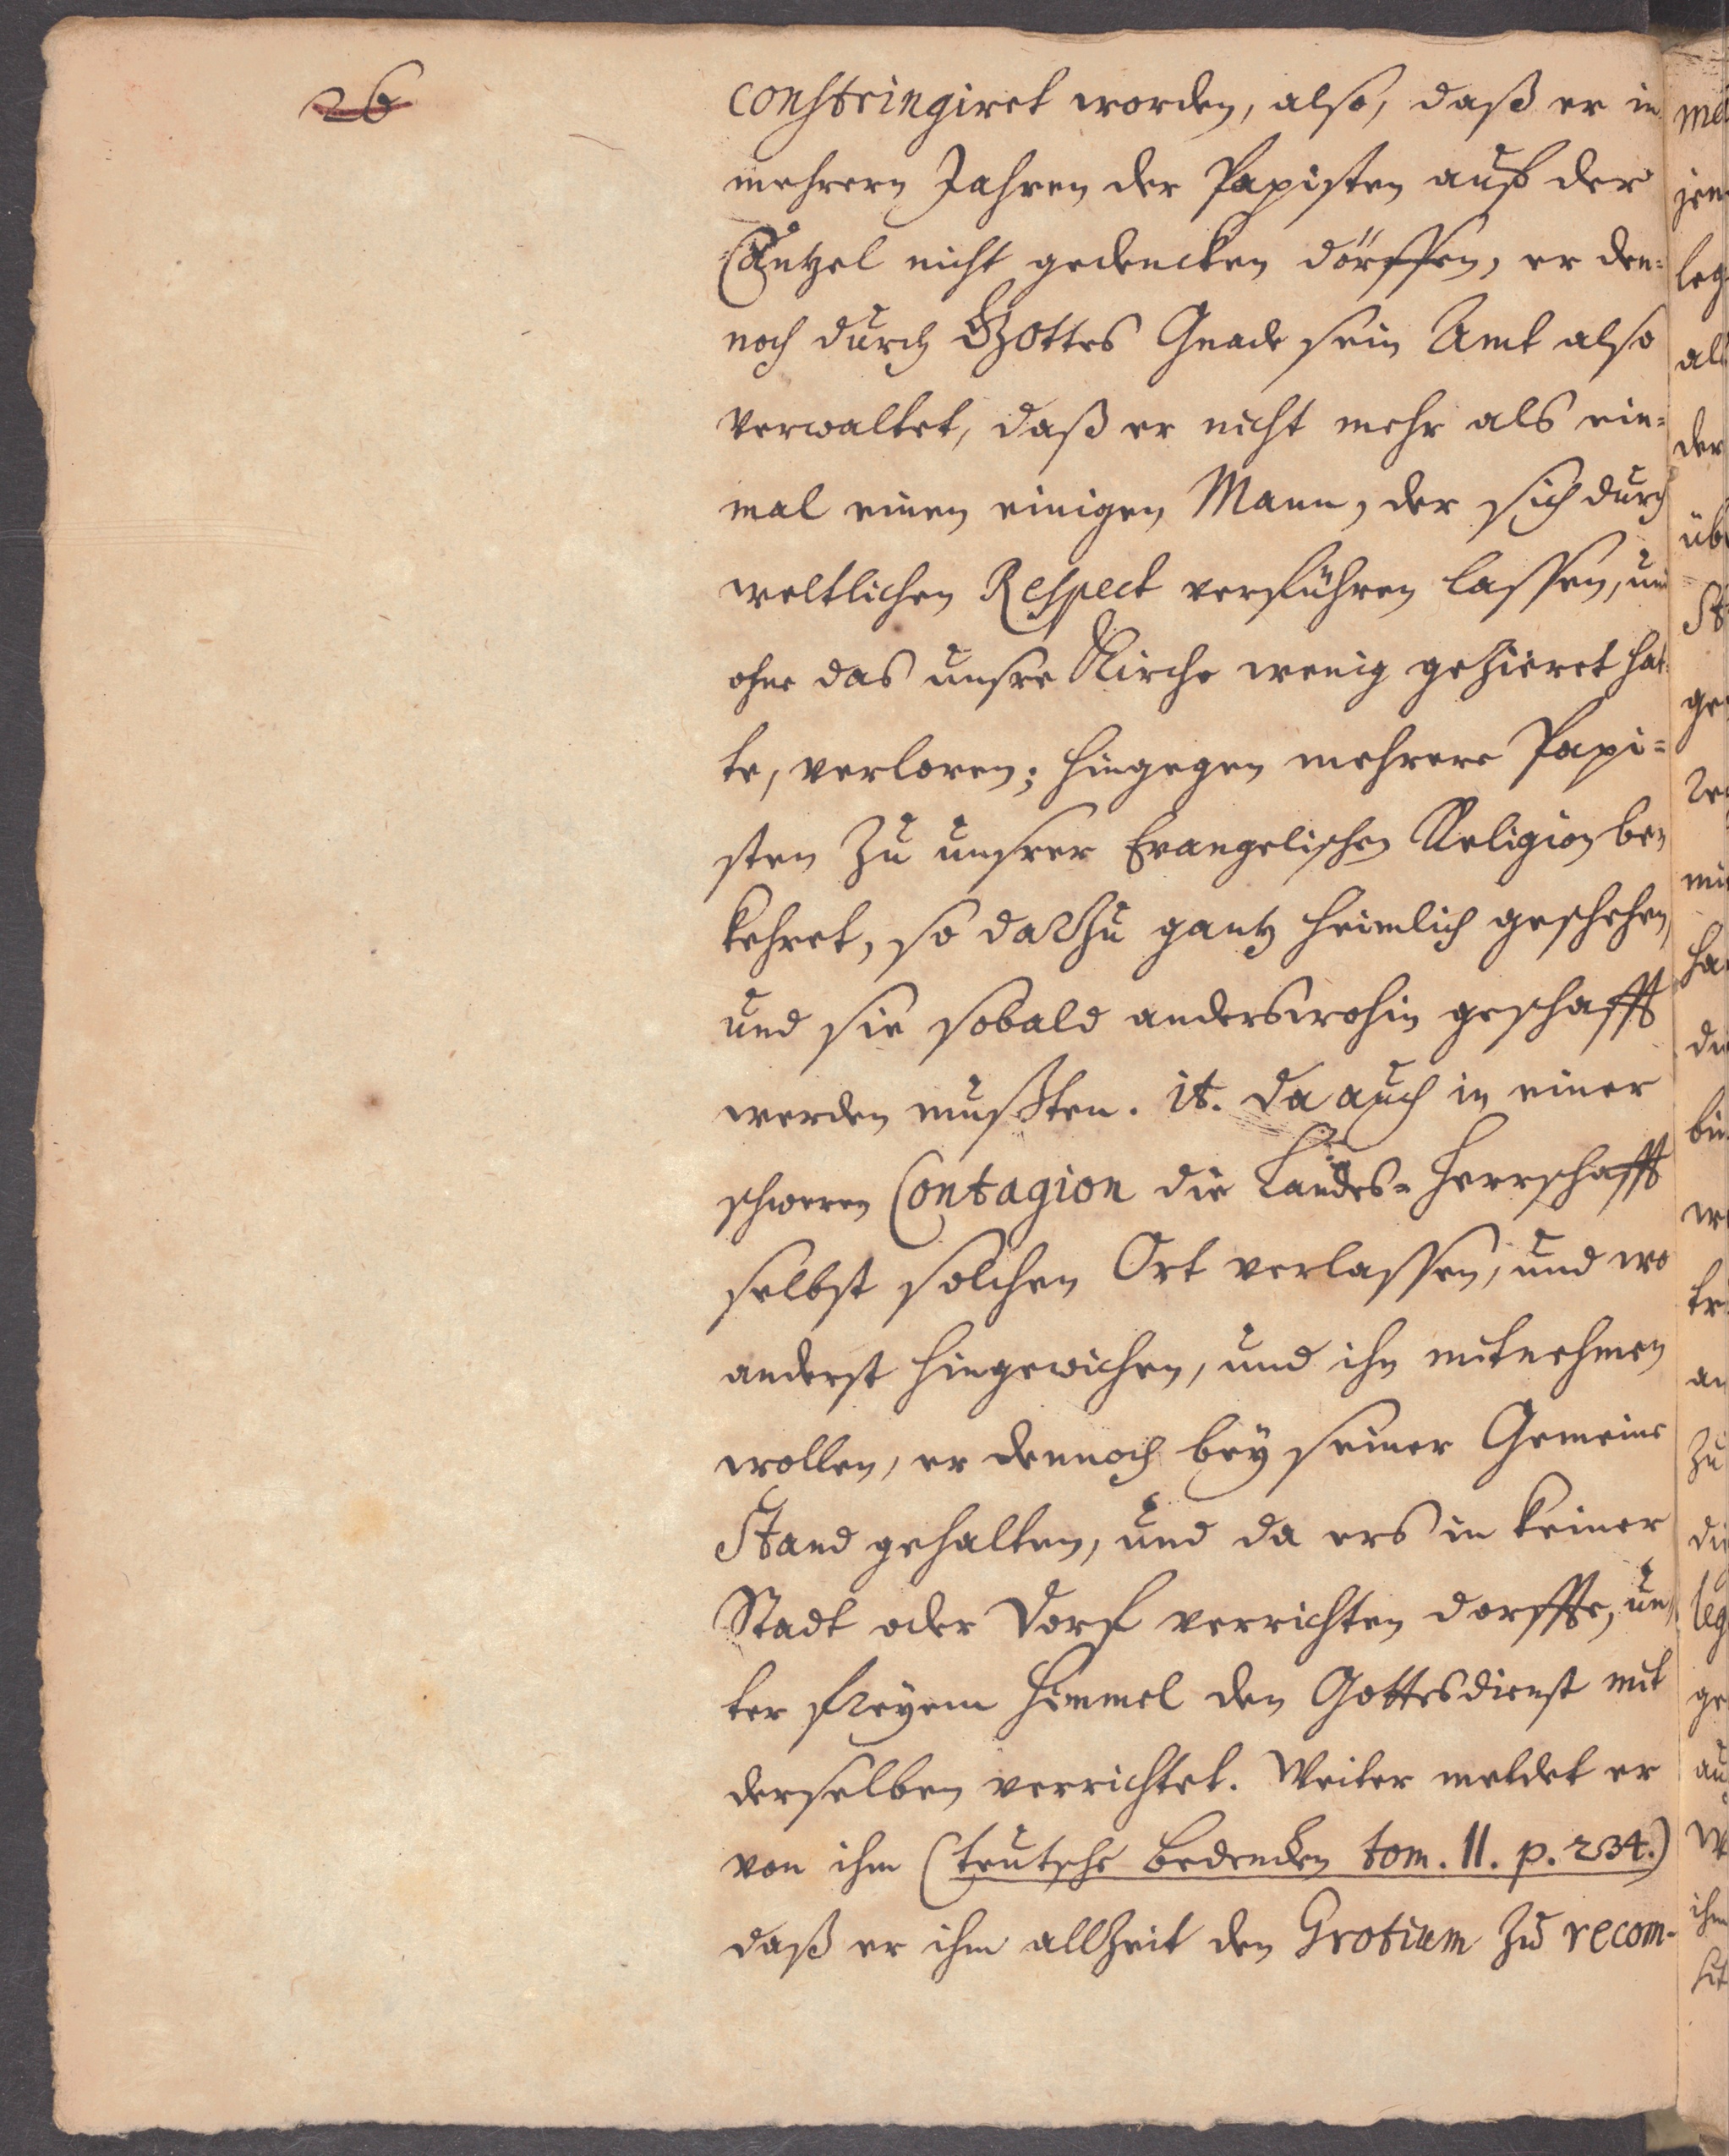 26
constringiret worden, also, daß er in
mehrern Jahren der Papisten auf der
Cantzel nicht gedencken dörffen, er den=
noch durch GOttes Gnade sein Amt also
verwaltet, daß er nicht mehr als ein=
mal einen einigen Mann, der sich durch
weltlichen Respect verführen lassen, und
ohne das unsre Kirche wenig gezieret hat=
te, verloren; hingegen mehrere Papi=
sten zu unsrer Evangelischen Religion be=
kehret, so darzu gantz heimlich geschehen,
und sie sobald anderswohin geschafft
werden mußten. it. da auch in einer
schweren Contagion die Landes=Herrschafft
selbst solchen Ort verlassen, und wo
anderst hingewichen, und ihn mitnehmen
wollen, er dennoch bey seiner Gemeine
Stand gehalten, und da ers in keiner
Stadt oder Dorf verrichten dorffte, un=
ter freyem Himmel den Gottesdienst mit
derselben verrichtet. Weiter meldet er
von ihm (teutsche Bedencken tom. II. p. 234.)
daß er ihm allzeit den Grotium zu recom-